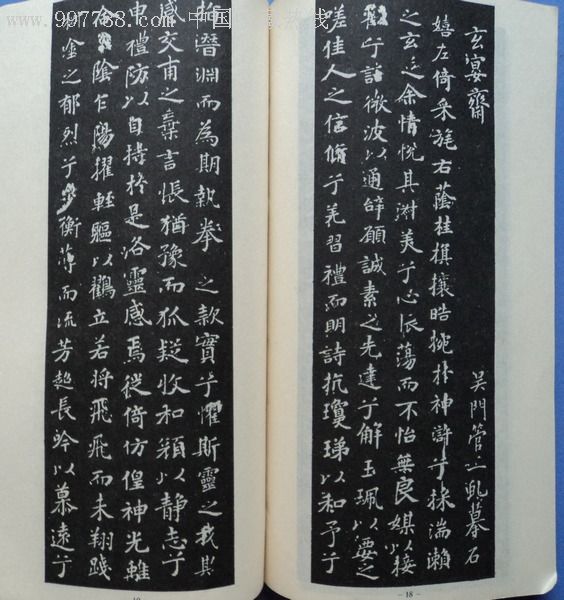 www.997788.com 中国收藏热线
玄宴齋 吳門管一虬摹石
嬉左倚采旄右蔭桂旗攘皓腕於神滸兮採湍瀨
之玄芝余情悅其淑美兮心振蕩而不怡無良媒以接
歡兮託微波以通辭願誠素之先達兮解玉珮以要之
嗟佳人之信脩兮羌習禮而明詩抗瓊珶以和予兮
- 18 -
指潛淵而為期執拳之款實兮懼斯靈之我欺
感交甫之棄言悵猶豫而狐疑收和顏以静志兮
申禮防以自持於是洛靈感焉徙倚仿偟神光離
合陰乍陽擢輕軀以鶴立若將飛飛而未翔踐
塗之郁烈兮步衡薄而流芳超長吟以慕遠兮